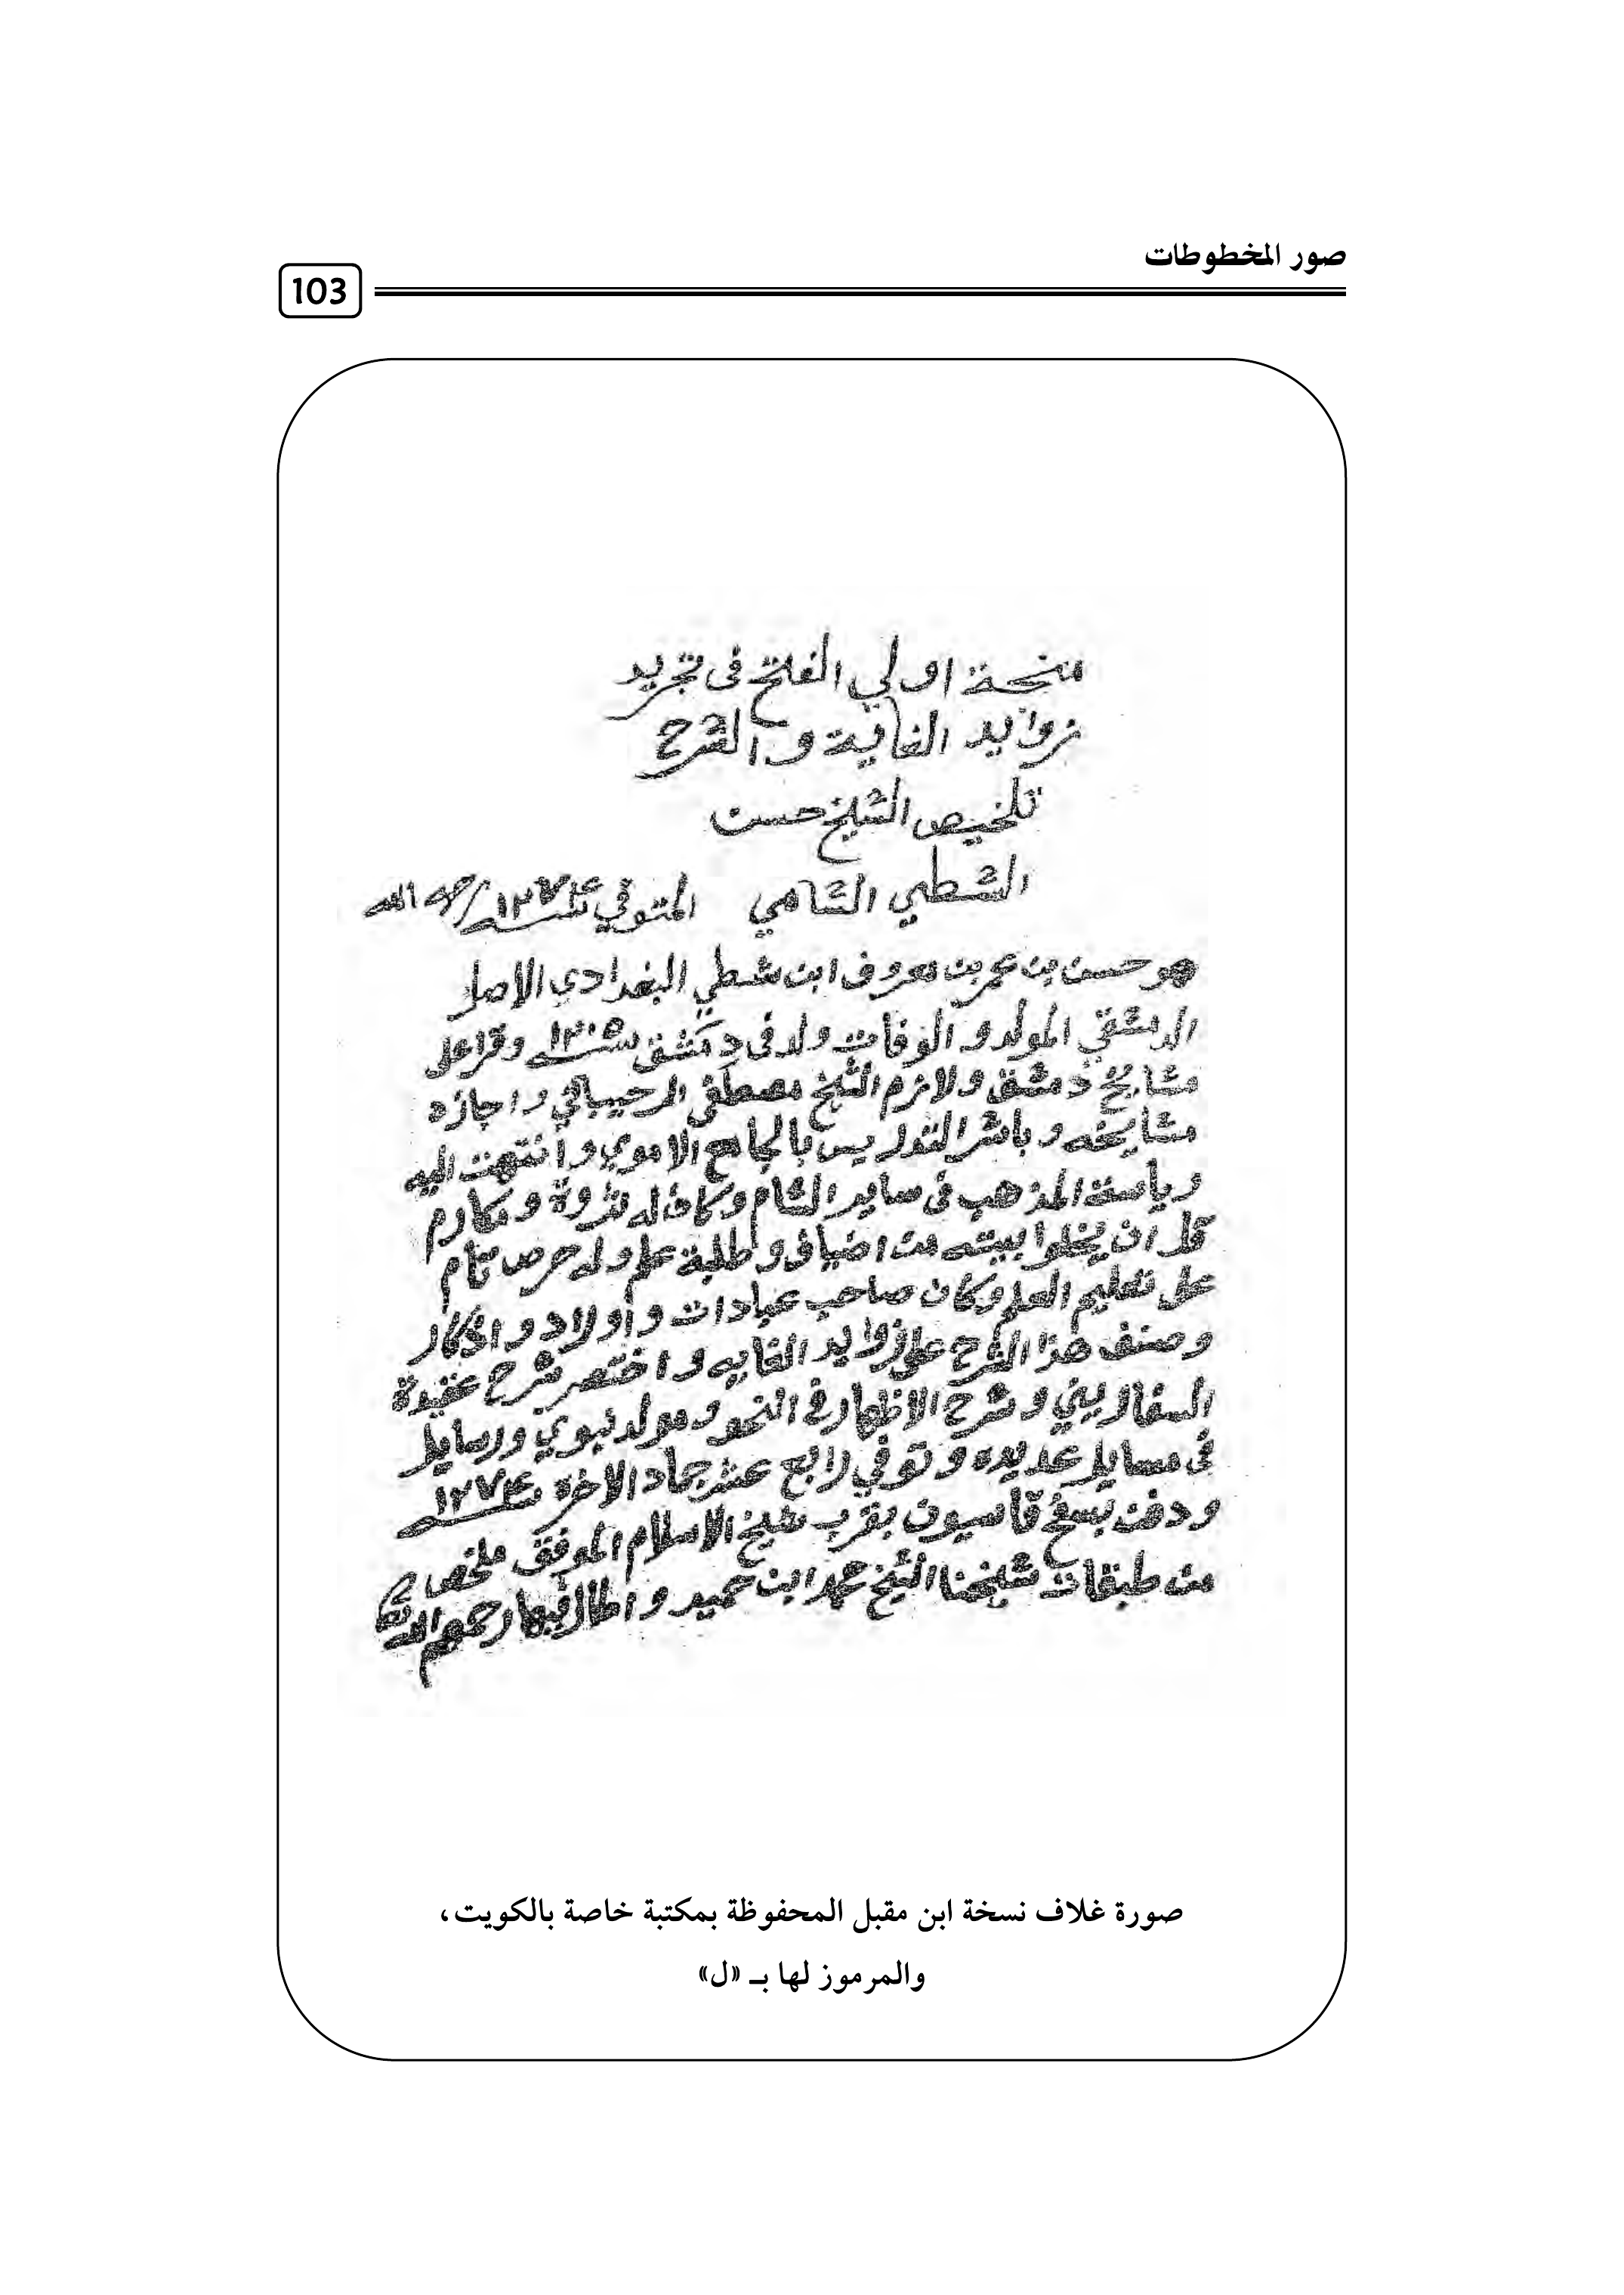 صور المخطوطات
103
منحة اولي الفتح فى تجريد
زوايد الغاية و الشرح
تلخيص الشيخ حسن
الشطي الشامي المتوفي سنة ١٢٧٤ رحمه الله
هو حسن بن عمر بن معروف ابن شطي البغدادي الاصل
الدمشقي المولد و الوفات ولد فى دمشق سنة ١٢٠٥ وقرا على
مشايخ دمشق ولازم الشيخ مصطفى الرحيباني و اجازه
مشايخه و باشر التدريس بالجامع الاموي و انتهت اليه
رياسة المذهب فى ساير الشام وكان له ثروة و مكارم
قل ان يخلوا بيته من اضياف و طلبة علم وله حرص تام
على تعليم العلم وكان صاحب عبادات و أولاد و اذكار
وصنف هذا الشرح على زوايد الغايه و اختصر شرح عقيدة
السفاريني و شرح الاظهار في النحو و مولد نبوي ورسايل
فى مسايل عديده و توفي رابع عشر جماد الاخرة سنة ١٢٧٤
ودفن بسفح قاسيون بقرب شيخ الاسلام الموفق ملخصا
من طبقات شيخنا الشيخ محمد ابن حميد و اطال فيها رحمهم الله
صورة غلاف نسخة ابن مقبل المحفوظة بمكتبة خاصة بالكويت،
والمرموز لها بـ «ل»